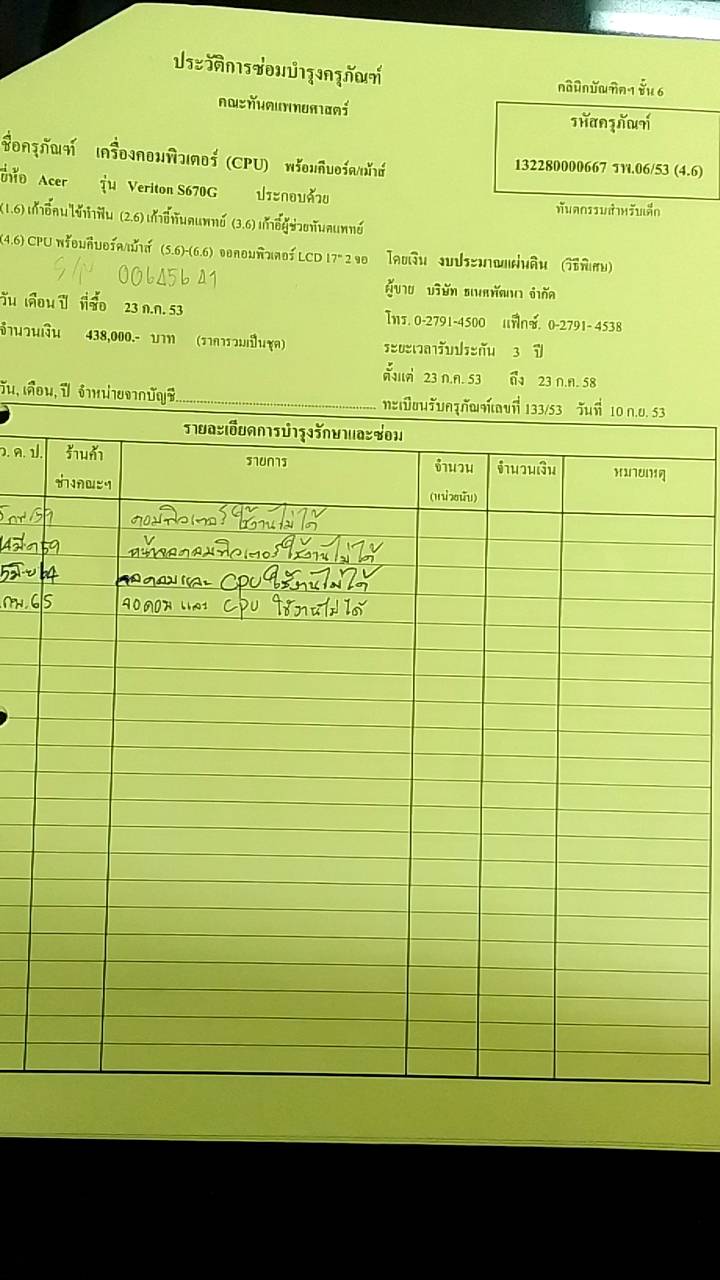 ประวัติการซ่อมบำรุงครุภัณฑ์
คณะทันตแพทยศาสตร์
คลินิกบัณฑิตฯ ชั้น 6
รหัสครุภัณฑ์
132280000667 รพ.06/53 (4.6)
ทันตกรรมสำหรับเด็ก
ชื่อครุภัณฑ์ เครื่องคอมพิวเตอร์ (CPU) พร้อมคีบอร์ด/เม้าส์
ยี่ห้อ Acer รุ่น Veriton S670G ประกอบด้วย
(1.6) เก้าอี้คนไข้ทำฟัน (2.6) เก้าอี้ทันตแพทย์ (3.6) เก้าอี้ผู้ช่วยทันตแพทย์
(4.6) CPU พร้อมคีบอร์ด/เม้าส์ (5.6)-(6.6) จอคอมพิวเตอร์ LCD 17" 2 จอ
S/N
วัน เดือน ปี ที่ซื้อ 23 ก.ก. 53
จำนวนเงิน 438,000.- บาท (ราคารวมเป็นชุด)
โดยเงิน งบประมาณแผ่นดิน (วิธีพิเศษ)
ผู้ขาย บริษัท ธเนศพัฒนา จำกัด
โทร. 0-2791-4500 แฟ็กซ์. 0-2791-4538
ระยะเวลารับประกัน 3 ปี
ตั้งแต่ 23 ก.ค. 53 ถึง 23 ก.ค. 58
วัน, เดือน, ปี จำหน่ายจากบัญชี........ ทะเบียนรับครุภัณฑ์เลขที่ 133/53 วันที่ 10 ก.ย. 53
รายละเอียดการบำรุงรักษาและซ่อม
ว. ค. ป. ร้านค้า ช่างคณะฯ รายการ จำนวน (หน่วยนับ) จำนวนเงิน หมายเหตุ
คอมพิวเตอร์ ใช้งานไม่ได้
หน้าจอคอมพิวเตอร์ ใช้งานไม่ได้
จอคอม และ CPU ใช้งานไม่ได้
กพ. 65 จอคอม และ CPU ใช้งานไม่ได้